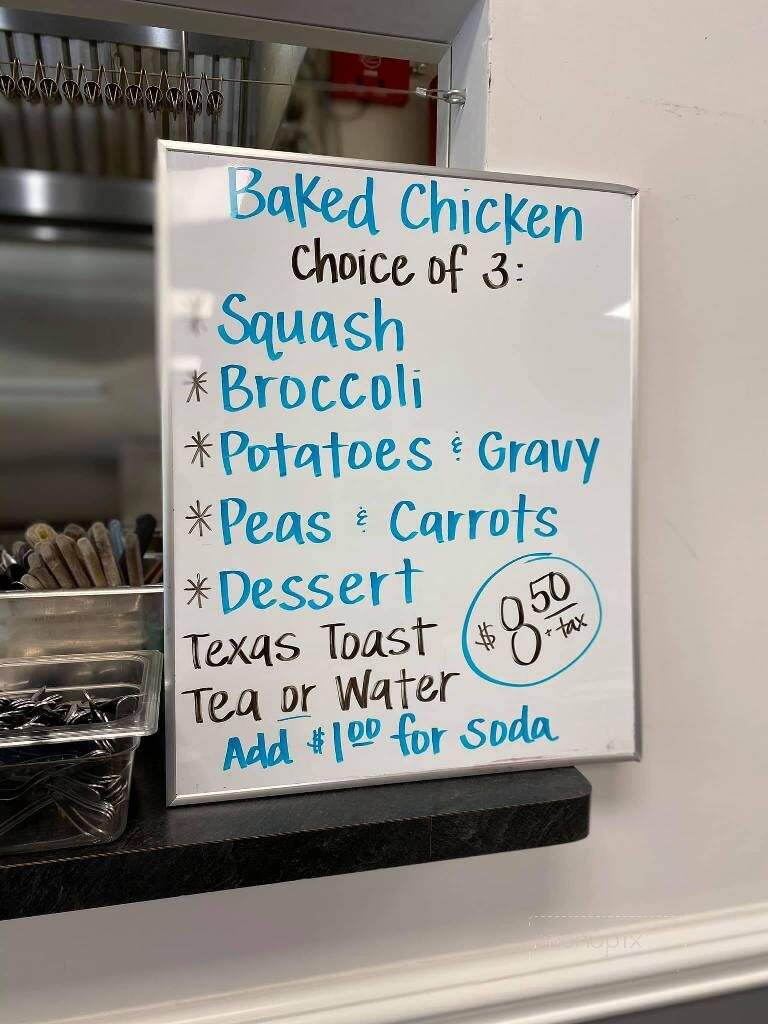 Baked Chicken
Choice of 3:
* Squash
* Broccoli
* Potatoes & Gravy
* Peas & Carrots
* Dessert
$8.50 + tax
Texas Toast
Tea or Water
Add $1.00 for soda